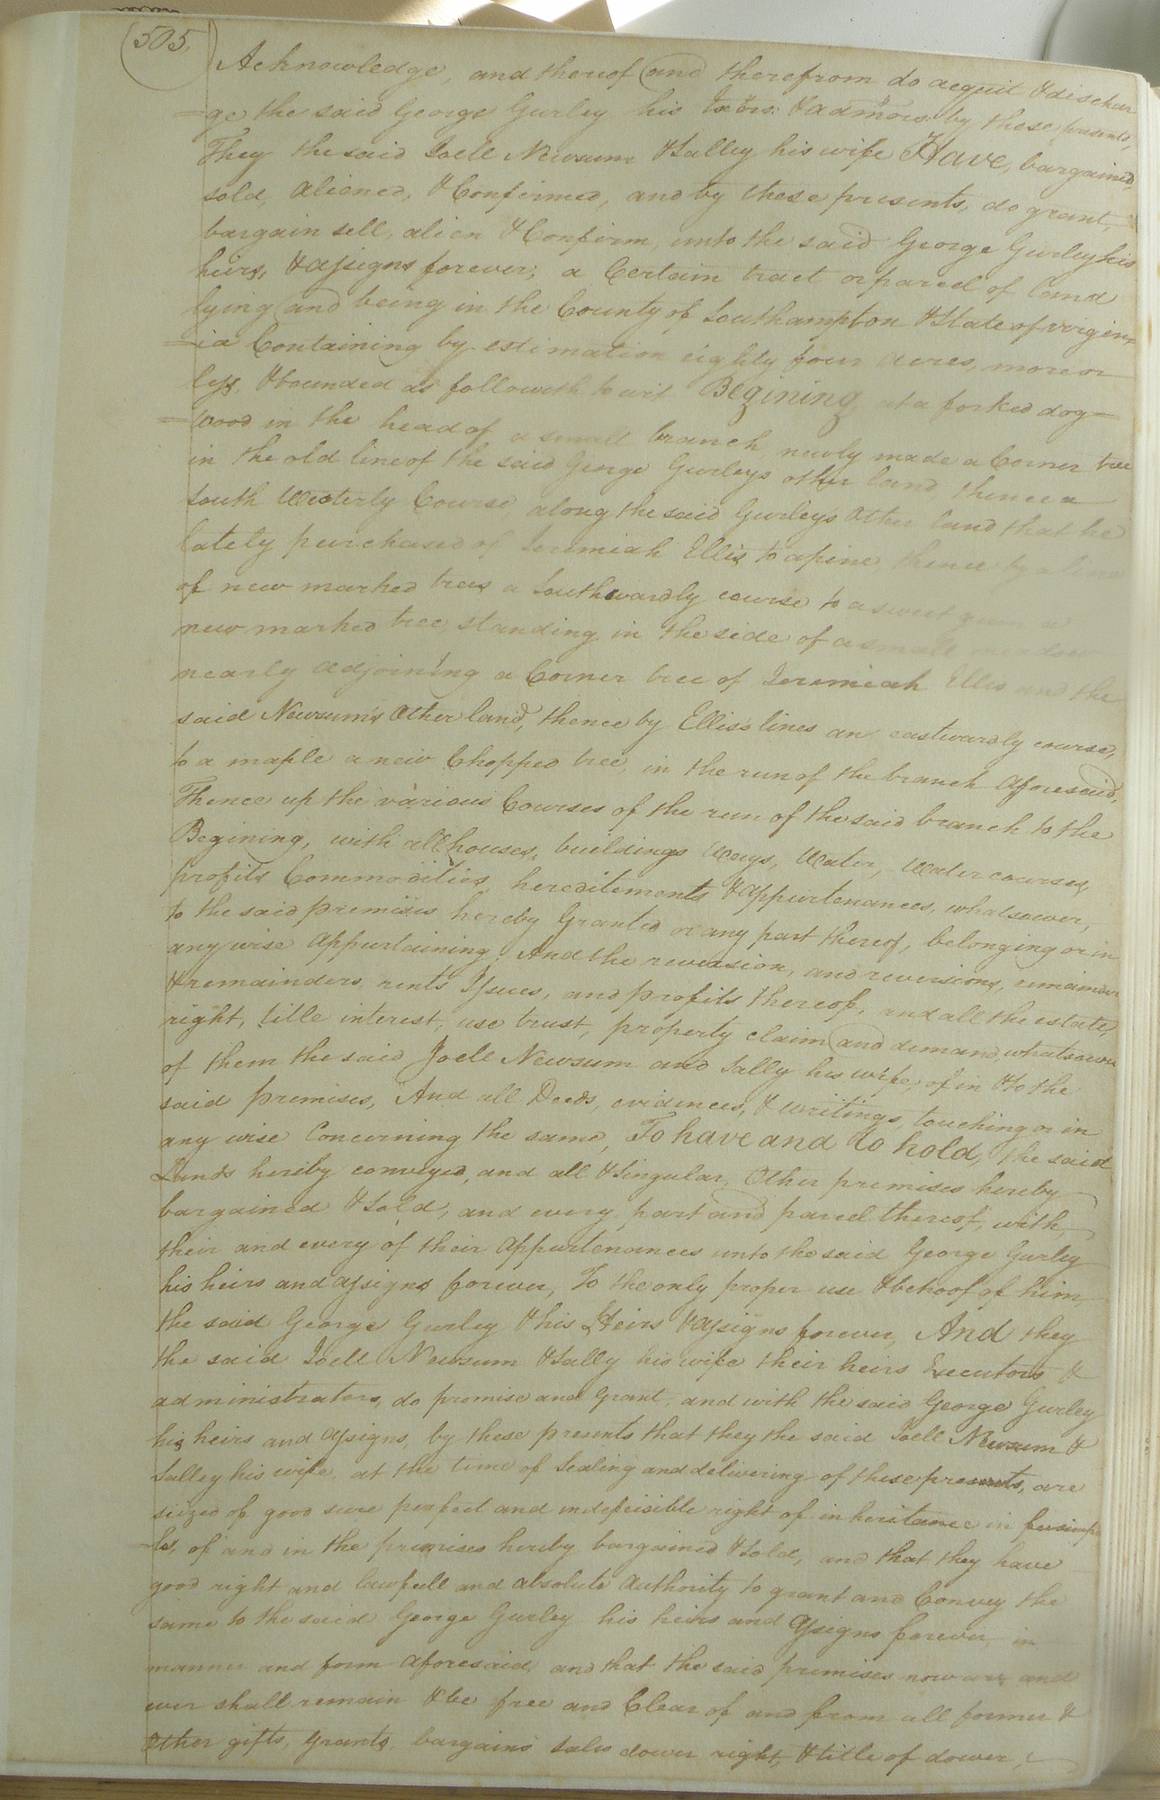 (505)
Acknowledge, and thereof and therefrom do acquit & dischar
=ge the said George Gurley his Exõrs: & admõrs: by these presents,
They the said Joell Newsum & Salley his wife Have, bargained,
sold, aliened, & Confirmed, and by these presents, do grant,
bargain sell, alien & Confirm, unto the said George Gurley his
heirs, & assigns forever, a Certain tract or parcel of land
lying and being in the County of Southampton & State of virgin=
=ia Containing by estimation eighty four acres, more or
less, & bounded as followeth to wit Begining at a forked dog=
=wood in the head of a small branch newly made a Corner tree
in the old line of the said George Gurleys other land thence a
South Westerly Course along the said Gurleys Other land that he
lately purchased of Jeremiah Ellis to a pine thence by a line
of new marked trees a Southwardly course to a sweet gum a
new marked tree standing in the side of a small meadow
nearly adjoining a Corner tree of Jeremiah Ellis and the
said Newsum's Other land, thence by Ellis's lines an eastwardly course,
to a maple a new Chopped tree, in the run of the branch aforesaid,
Thence up the various Courses of the run of the said branch to the
Begining, with all houses, buildings Ways, Water, Water courses,
profits Commodities, hereditements & appurtenances, whatsoever,
to the said premises hereby Granted or any part thereof, belonging or in
any wise appurtaining. And the reversion, and reversions, remainder
& remainders, rents Issues, and profits thereof, and all the estate,
right, title interest, use trust, property claim and demand, whatsoever
of them the said Joell Newsum and Sally his wife, of in & to the
said premises, And all Deeds, evidences, & writings, touching or in
any wise Concerning the same, To have and to hold, the said
Lands hereby conveyed, and all & Singular, Other premises hereby
bargained & Sold, and every part and parcel thereof, with,
their and every of their appurtenances unto the said George Gurley
his heirs and assigns forever, To the only proper use & behoof of him,
the said George Gurley & his Heirs & assigns forever, And they
the said Joell Newsum & Sally his wife their heirs Executors &
administrators, do promise and Grant, and with the said George Gurley
his heirs and assigns, by these presents that they the said Joell Newsum &
Salley his wife, at the time of Sealing and delivering of these presents, are
seized of good sure perfect and indefeisible right of inheritance in feesimp
=le, of and in the premises hereby bargained & Sold, and that they have
good right and lawfull and absolute authority to grant and Convey the
same to the said George Gurley his heirs and assigns forever, in
manner and form aforesaid, and that the said premises now are and
ever shall remain & be free and Clear of and from all former &
Other gifts, grants, bargains sales dower right, & title of dower,